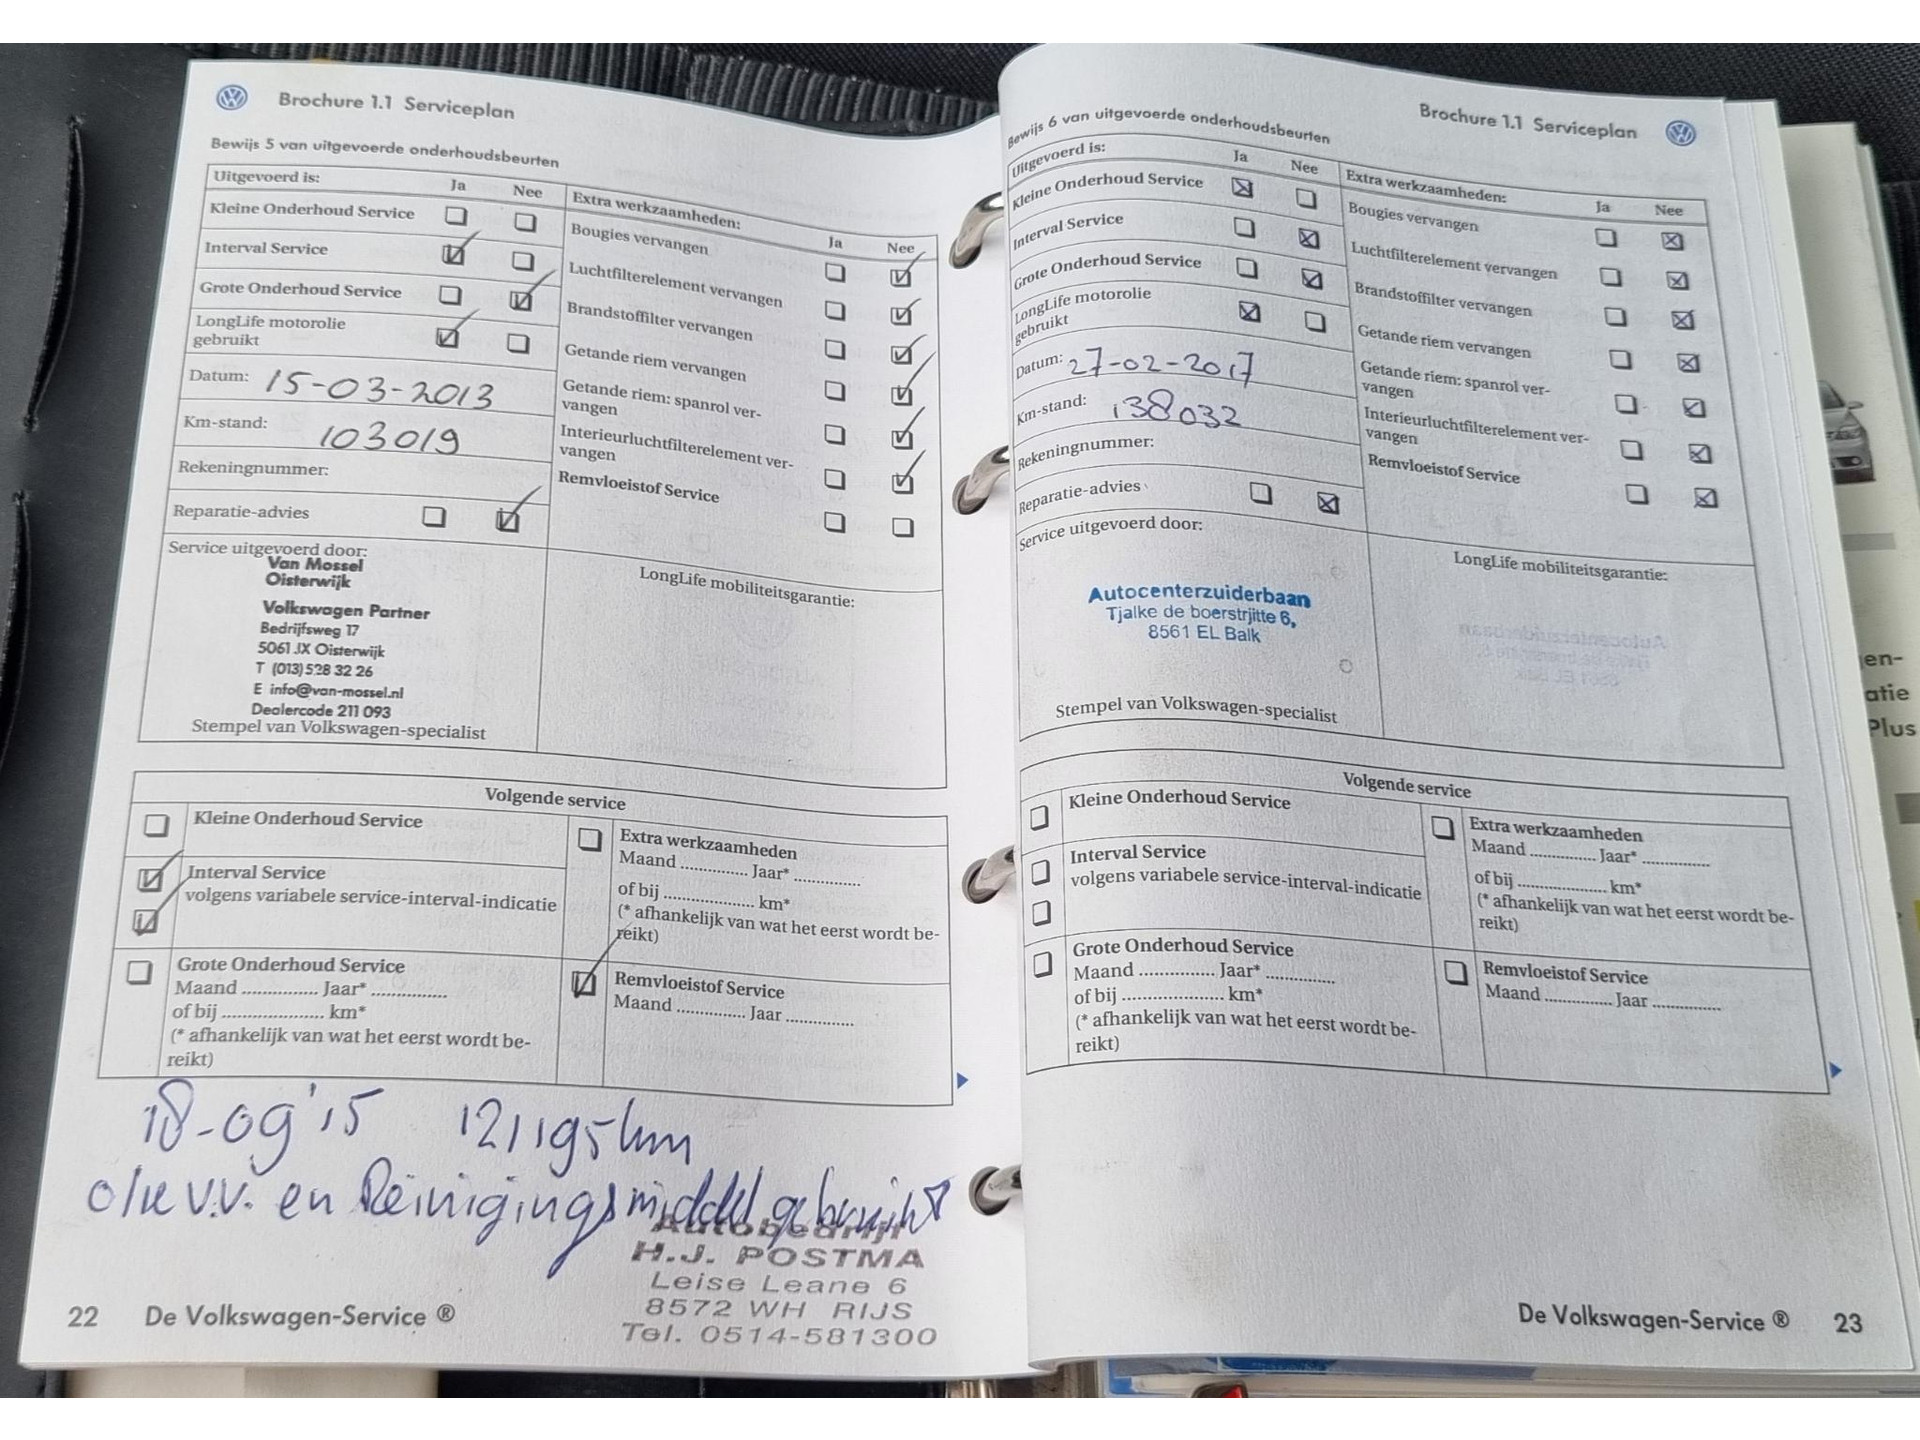 Brochure 1.1 Serviceplan
Bewijs 5 van uitgevoerde onderhoudsbeurten
Uitgevoerd is: Ja Nee
Kleine Onderhoud Service
Interval Service
Grote Onderhoud Service
LongLife motorolie
gebruikt
Datum: 15-03-2013
Km-stand: 103019
Rekeningnummer:
Reparatie-advies
Extra werkzaamheden: Ja Nee
Bougies vervangen
Luchtfilterelement vervangen
Brandstoffilter vervangen
Getande riem vervangen
Getande riem: spanrol ver-
vangen
Interieurluchtfilterelement ver-
vangen
Remvloeistof Service
Service uitgevoerd door:
Van Mossel
Oisterwijk
Volkswagen Partner
Bedrijfsweg 17
5061 JX Oisterwijk
T (013) 528 32 26
E info@van-mossel.nl
Dealercode 211 093
Stempel van Volkswagen-specialist
LongLife mobiliteitsgarantie:
Volgende service
Kleine Onderhoud Service
Interval Service
volgens variabele service-interval-indicatie
Grote Onderhoud Service
Maand ............... Jaar* ...............
of bij ..................... km*
(* afhankelijk van wat het eerst wordt be-
reikt)
Extra werkzaamheden
Maand .............. Jaar* ..............
of bij .................... km*
(* afhankelijk van wat het eerst wordt be-
reikt)
Remvloeistof Service
Maand .............. Jaar ..............
18-09'15 121195 km
olie v.v. en Reinigingsmiddel gebruikt
Autobedrijf
H.J. POSTMA
Leise Leane 6
8572 WH RIJS
Tel. 0514-581300
22 De Volkswagen-Service ®
Brochure 1.1 Serviceplan
Bewijs 6 van uitgevoerde onderhoudsbeurten
Uitgevoerd is: Ja Nee
Kleine Onderhoud Service
Interval Service
Grote Onderhoud Service
LongLife motorolie
gebruikt
Datum: 27-02-2017
Km-stand: 138032
Rekeningnummer:
Reparatie-advies
Extra werkzaamheden: Ja Nee
Bougies vervangen
Luchtfilterelement vervangen
Brandstoffilter vervangen
Getande riem vervangen
Getande riem: spanrol ver-
vangen
Interieurluchtfilterelement ver-
vangen
Remvloeistof Service
Service uitgevoerd door:
Autocenterzuiderbaan
Tjalke de boerstrjitte 6,
8561 EL Balk
Stempel van Volkswagen-specialist
LongLife mobiliteitsgarantie:
Volgende service
Kleine Onderhoud Service
Interval Service
volgens variabele service-interval-indicatie
Grote Onderhoud Service
Maand ............... Jaar* ..............
of bij ..................... km*
(* afhankelijk van wat het eerst wordt be-
reikt)
Extra werkzaamheden
Maand .............. Jaar* ..............
of bij .................... km*
(* afhankelijk van wat het eerst wordt be-
reikt)
Remvloeistof Service
Maand .............. Jaar ..............
De Volkswagen-Service ® 23
en-
atie
Plus